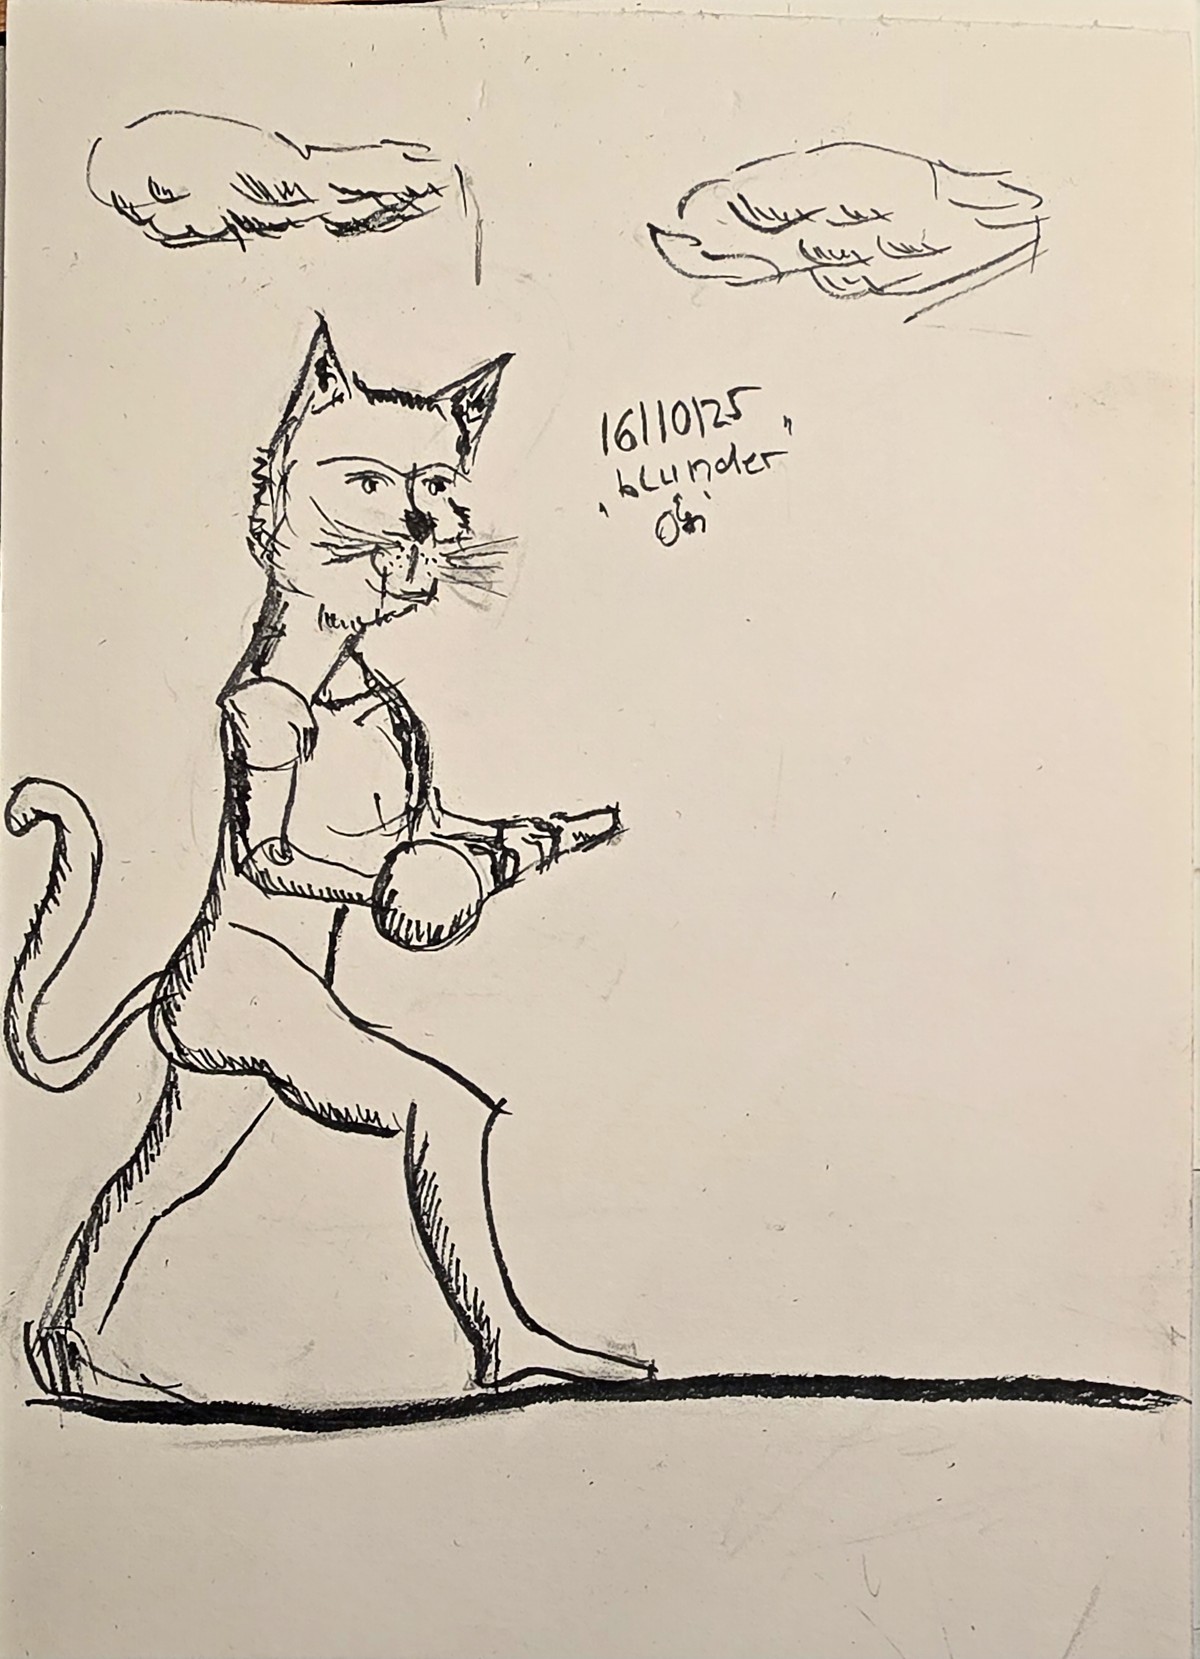 16/10/25
"blunder"